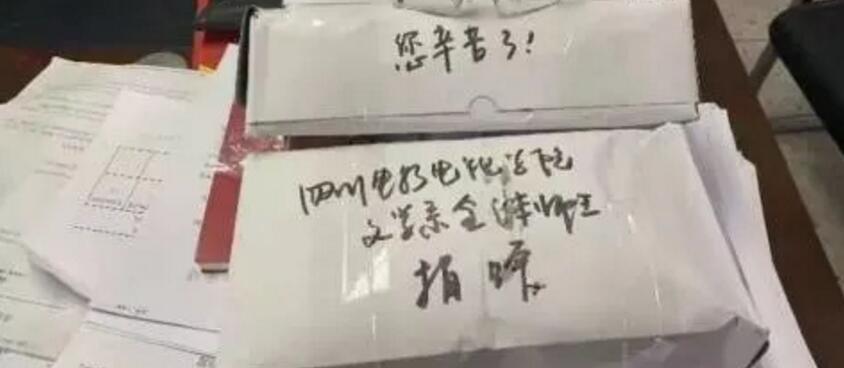 您辛苦了!
四川电影电视学院
文学系全体师生
捐赠